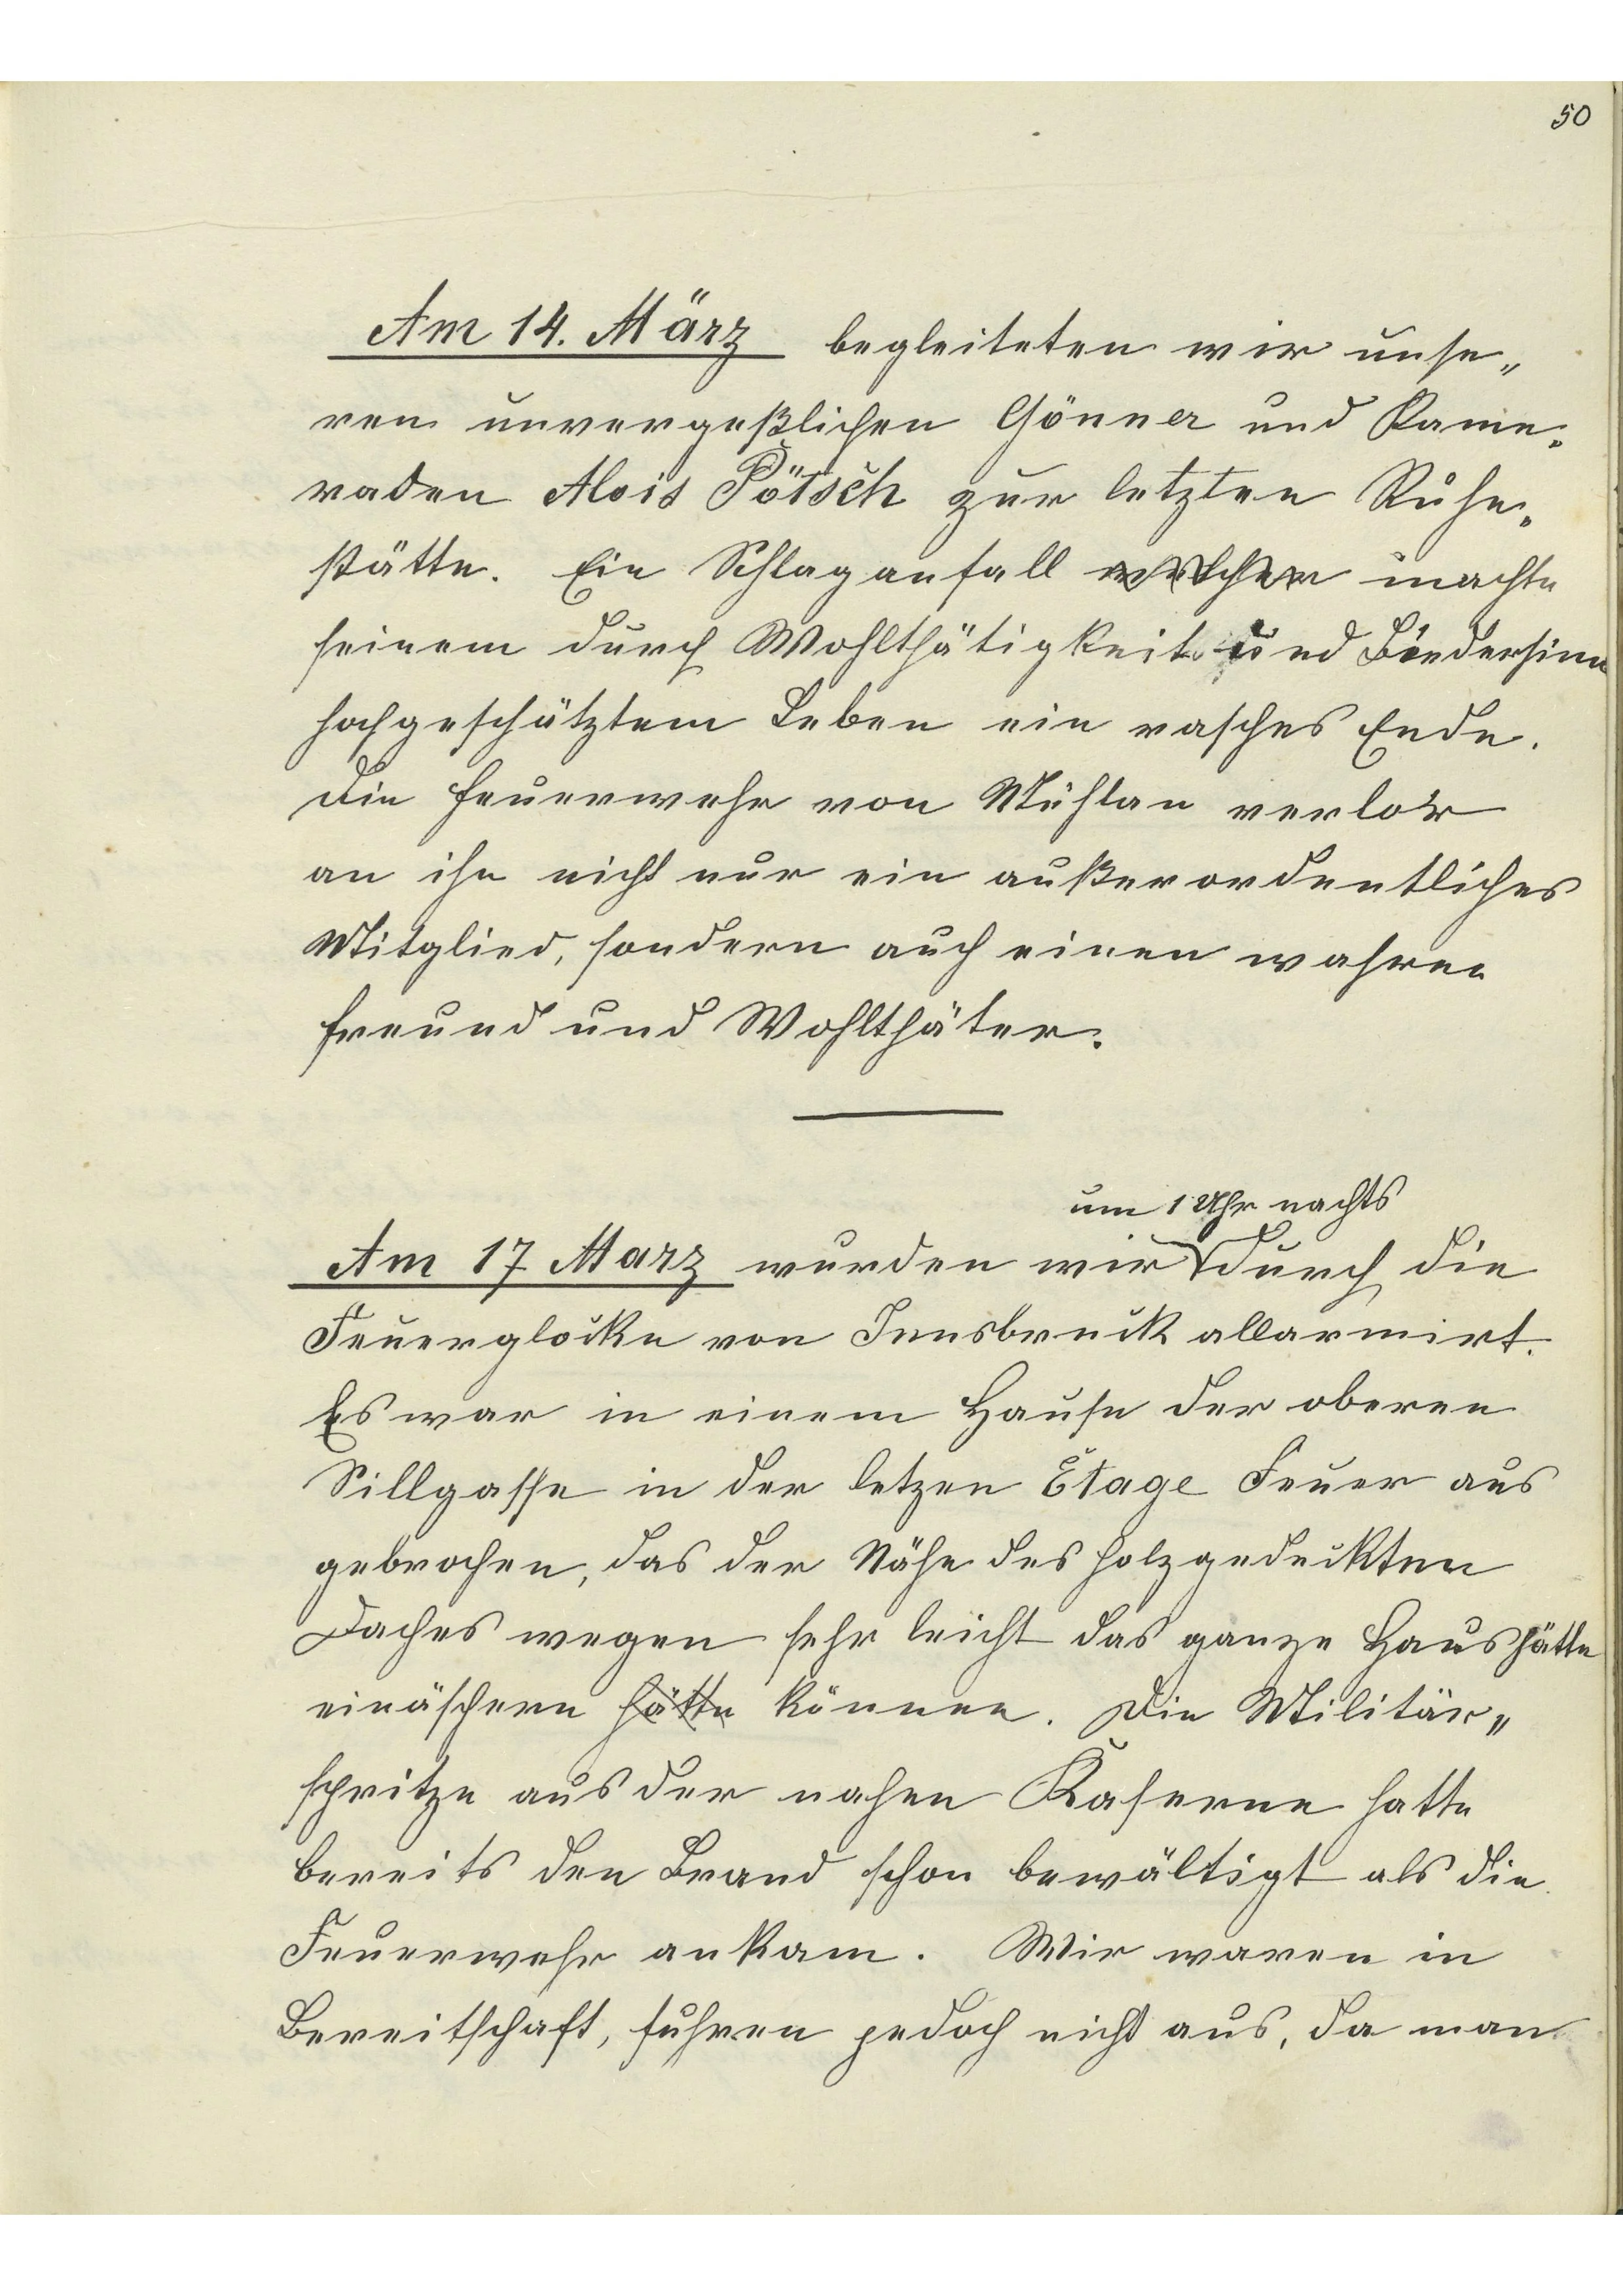 50
Am 14. März begleiteten wir unse„
ren unvergeßlichen Gönner und Kame„
raden Alois Pötsch zur letzten Ruhe„
stätte. Ein Schlaganfall machte
seinem durch Wohlthätigkeit und Biedersinn
hochgeschätztem Leben ein rasches Ende.
Die Feuerwehr von Mühlau verlor
an ihn nicht nur ein außerordentliches
Mitglied, sondern auch einen wahren
Freund und Wohlthäter.
um 1 Uhr nachts
Am 17 Marz wurden wir durch die
Feuerglocke von Innsbruck allarmirt.
Es war in einem Hause der oberen
Sillgasse in der letzen Etage Feuer aus
gebrochen, das der Nähe des holzgedeckten
Daches wegen sehr leicht das ganze Haus hätte
einäschern hätte können. Die Militär„
spritze aus der nahen Kaserne hatte
bereits den Brand schon bewältigt als die
Feuerwehr ankam. Wir waren in
Bereitschaft, fuhren jedoch nicht aus, da man